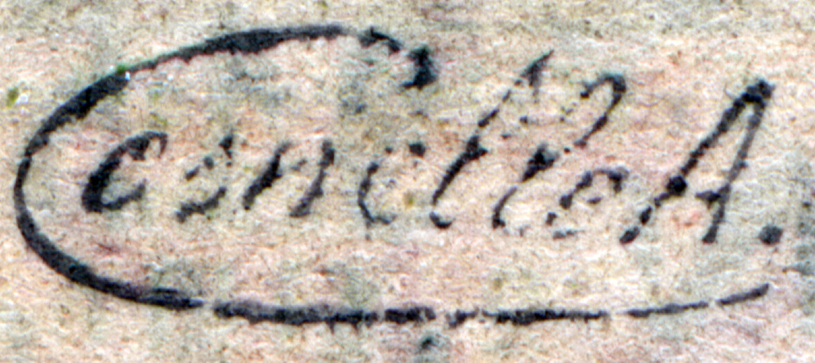 Canello A.